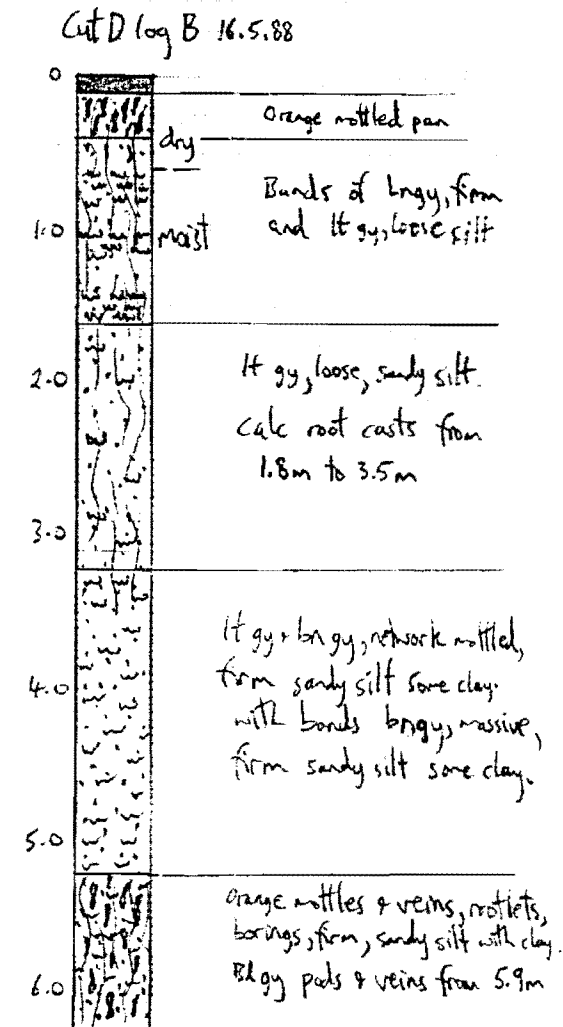 Cut D log B 16.5.88
0
Orange mottled pan
dry
Bands of bngy, firm
and lt gy, loose silt
1.0
moist
2.0
lt gy, loose, sandy silt.
calc root casts from
1.8m to 3.5m
3.0
lt gy & bn gy, network mottled,
firm sandy silt some clay.
4.0
with bands bngy, massive,
firm sandy silt some clay.
5.0
Orange mottles & veins, rootlets,
borings, firm, sandy silt with clay.
Blgy pods & veins from 5.9m
6.0